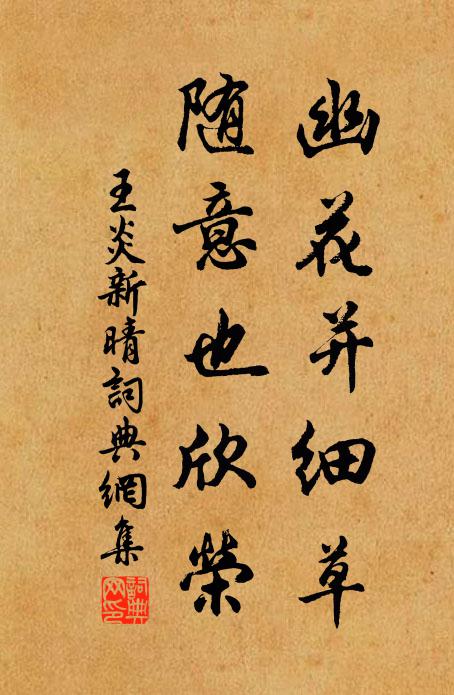 幽花并细草
随意也欣榮
王炎新晴詞典網集
詞典
网印